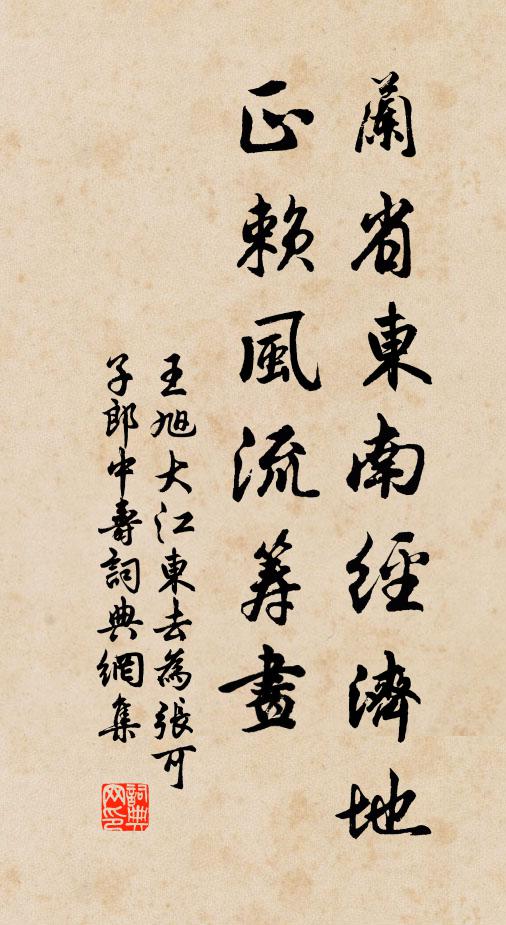 蘭省東南經濟地
正賴風流筭畫
王旭大江東去為張可
子郎中壽詞典網集
詞典网印